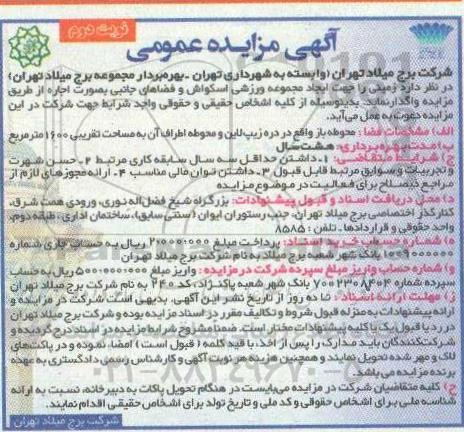 نوبت دوم
آگهی مزایده عمومی
شرکت برج میلاد تهران (وابسته به شهرداری تهران - بهره‌بردار مجموعه برج میلاد تهران)
در نظر دارد زمینی را جهت ایجاد مجموعه ورزشی اسکواش و فضاهای جانبی بصورت اجاره از طریق
مزایده واگذار نماید. بدینوسیله از کلیه اشخاص حقیقی و حقوقی واجد شرایط جهت شرکت در این
مزایده دعوت به عمل می‌آید.
الف) مشخصات فضا: محوطه باز واقع در دره زیپ‌لاین و محوطه اطراف آن به مساحت تقریبی ۱۶۰۰ مترمربع
ب) مدت بهره‌برداری: هشت سال
ج) شرایط متقاضی: ۱- داشتن حداقل سه سال سابقه کاری مرتبط ۲- حسن شهرت
و تجربیات و سوابق مرتبط قابل قبول ۳- داشتن توان مالی مناسب ۴- ارائه مجوزهای لازم از
مراجع ذیصلاح برای فعالیت در موضوع مزایده
د) محل دریافت اسناد و قبول پیشنهادات: بزرگراه شیخ فضل‌اله نوری، ورودی همت شرق،
کنارگذر اختصاصی برج میلاد تهران، جنب رستوران ایوان (سنتی سابق)، ساختمان اداری، طبقه دوم،
واحد حقوقی و قراردادها - تلفن: ۸۵۸۵
ه) شماره حساب خرید اسناد: پرداخت مبلغ ۲،۰۰۰،۰۰۰ ریال به حساب جاری شماره
بانک شهر شعبه برج میلاد به نام شرکت برج میلاد تهران
و) شماره حساب واریز مبلغ سپرده شرکت در مزایده: واریز مبلغ ۵۰۰،۰۰۰،۰۰۰ ریال به حساب
سپرده شماره ۷۰۰۲۳۰۸۴۰۴ بانک شهر شعبه پاکنژاد، کد ۲۴۰ به نام شرکت برج میلاد تهران
ز) مهلت ارائه اسناد: تا ده روز از تاریخ نشر این آگهی. بدیهی است شرکت در مزایده و
ارائه پیشنهادات به منزله قبول شروط و تکالیف مقرر در اسناد مزایده بوده و شرکت برج میلاد تهران
در رد یا قبول یک یا کلیه پیشنهادات مختار است. ضمنا مشروح شرایط مزایده در اسناد درج گردیده و
شرکت‌کنندگان باید مدارک را پس از اخذ، با قید کلمه (قبول است) امضا، نموده و در پاکت‌های
لاک و مهر شده تحویل نمایند و همچنین هزینه هر نوبت آگهی و کارشناس رسمی دادگستری به عهده
برنده مزایده می‌باشد.
ح) کلیه متقاضیان شرکت در مزایده می‌بایست در هنگام تحویل پاکات به دبیرخانه، نسبت به ارائه
شناسه ملی برای اشخاص حقوقی و کد ملی و تاریخ تولد برای اشخاص حقیقی اقدام نمایند.
شرکت برج میلاد تهران